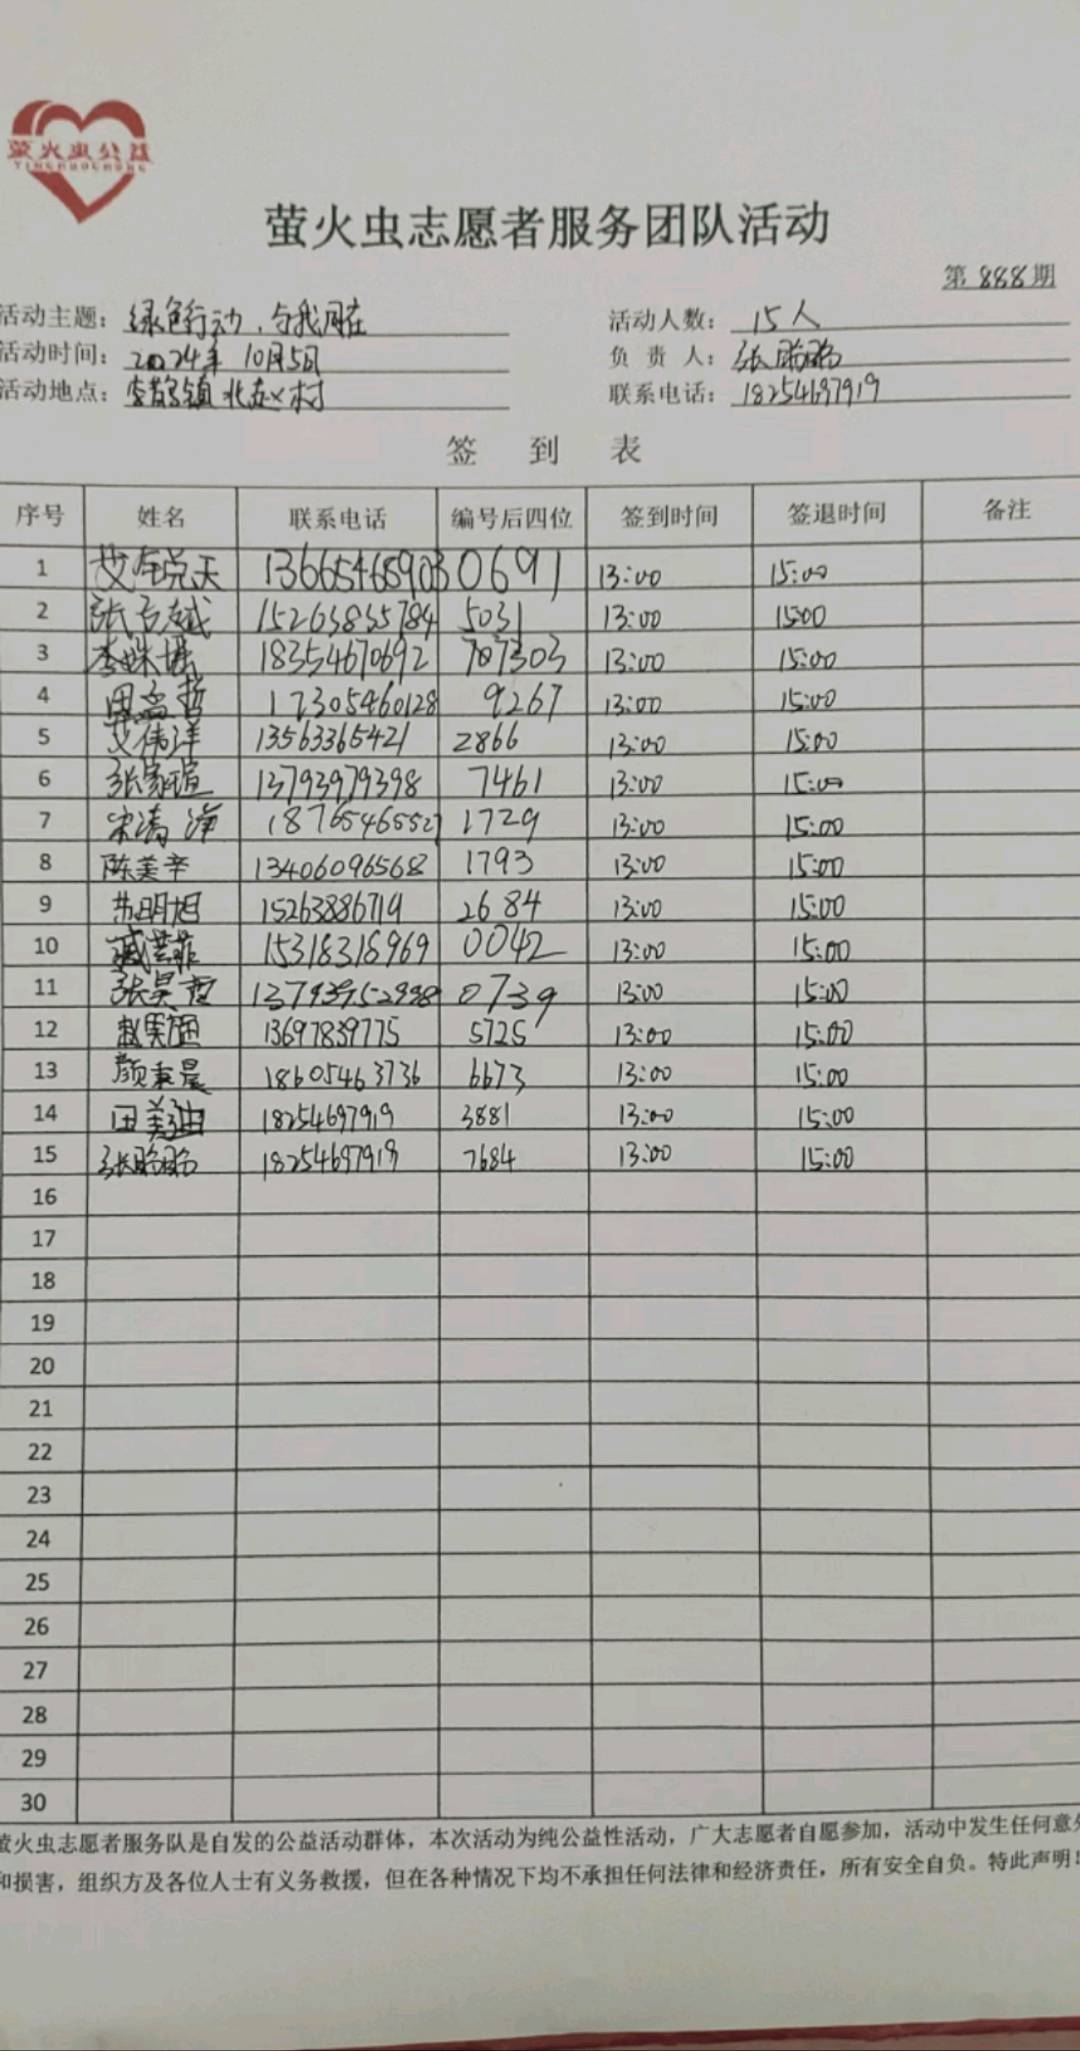 萤火虫公益
YINGHUOCHONG
萤火虫志愿者服务团队活动
第 888 期
活动主题: 绿色行动,与我同在 活动人数: 15人
活动时间: 2024年 10月5日 负 责 人: 张盼盼
活动地点: 镇北赵村 联系电话: 18254697919
签 到 表
序号 姓名 联系电话 编号后四位 签到时间 签退时间 备注
1 13665465903 0691 13:00 15:00
2 15263835784 5031 13:00 15:00
3 18354670692 707303 13:00 15:00
4 田孟哲 17305460128 9267 13:00 15:00
5 艾伟洋 13563365421 2866 13:00 15:00
6 张家瑄 13793979398 7461 13:00 15:00
7 宋涛泽 18765465527 1729 13:00 15:00
8 陈美辛 13406096568 1793 13:00 15:00
9 苏明旭 15263886719 2684 13:00 15:00
10 15318318969 0042 13:00 15:00
11 张昊哲 13793952998 0739 13:00 15:00
12 13697839775 5725 13:00 15:00
13 颜秉晨 18605463736 6673 13:00 15:00
14 田美迪 18254697919 3881 13:00 15:00
15 张盼盼 18254697919 7684 13:00 15:00
16
17
18
19
20
21
22
23
24
25
26
27
28
29
30
萤火虫志愿者服务队是自发的公益活动群体，本次活动为纯公益性活动，广大志愿者自愿参加，活动中发生任何意外
和损害，组织方及各位人士有义务救援，但在各种情况下均不承担任何法律和经济责任，所有安全自负。特此声明！